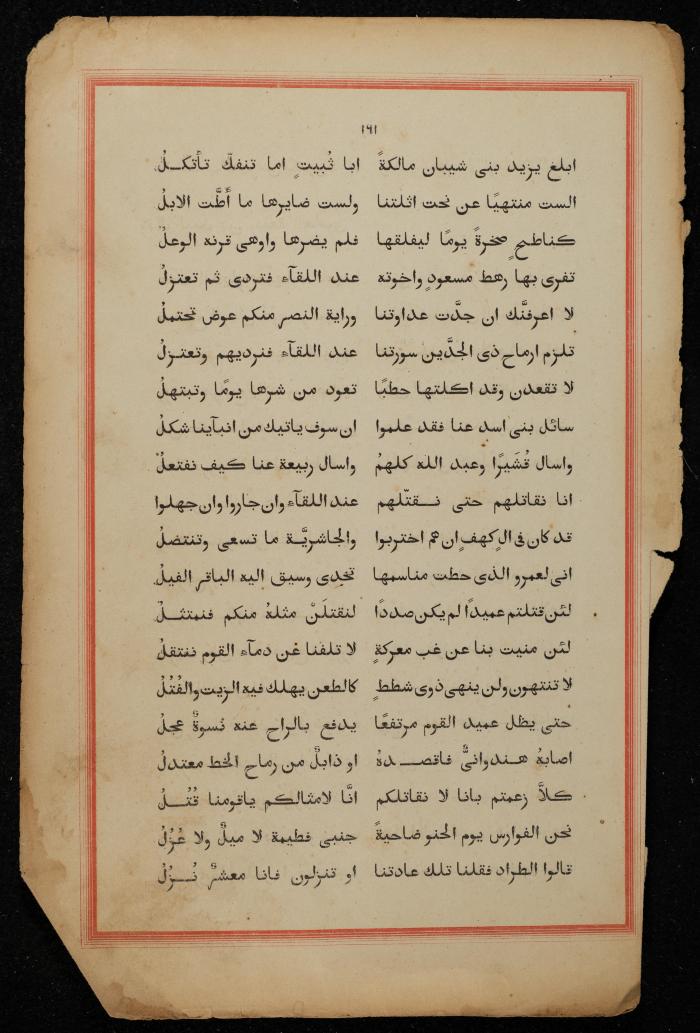 ١٦١
ابلغ يزيد بنى شيبان مالكةً ابا ثُبيتٍ اما تنفكّ تأتكلُ
الست منتهيًا عن نحت اثلتنا ولست ضايرها ما أطَّت الابلُ
كناطحٍ صخرةً يومًا ليفلقها فلم يضرها واوهى قرنه الوعلُ
تغرى بها رهط مسعودٍ واخوته عند اللقآء فتردى ثم تعتزلُ
لا اعرفنَّك ان جدَّت عداوتنا وراية النصر منكم عوض تحتملُ
تلزم ارماح ذى الجدَّين سورتنا عند اللقآء فنرديهم وتعتزلُ
لا تقعدن وقد اكلتها حطبًا تعود من شرها يومًا وتبتهلُ
سائل بنى اسد عنا فقد علموا ان سوف ياتيك من انبآينا شكلُ
واسال قُشَيرًا وعبد الله كلهمُ واسال ربيعة عنا كيف نفتعلُ
انا نقاتلهم حتى نقتّلهم عند اللقآء وان جاروا وان جهلوا
قد كان فى الِ كهفٍ ان هم اختربوا والجاشريَّة ما تسعى وتنتضلُ
انى لعمرو الذى حطت مناسمها تخدى وسيق اليه الباقر الغيلُ
لئن قتلتم عميدًا لم يكن صددًا لنقتلَنْ مثلهُ منكم فنمتثلُ
لئن منيت بنا عن غب معركةٍ لا تلفنا عَن دمآء القوم ننتقلُ
لا تنتهون ولن ينهى ذوى شططٍ كالطعن يهلك فيه الزيت والفُتُلُ
حتى يظل عميد القوم مرتفعًا يدفع بالراح عنه نسوةٌ عجلُ
اصابهُ هندوانىٌّ فاقصدهُ او ذابلٌ من رماح الخط معتدلُ
كلاَّ زعمتم بانا لا نقاتلكم انَّا لامثالكم ياقومنا قُتُلُ
نحن الفوارس يوم الحنو ضاحيةً جنبى فطيمة لا ميلٌ ولا عُزُلُ
قالوا الطراد فقلنا تلك عادتنا او تنزلون فانا معشرٌ نُزُلُ